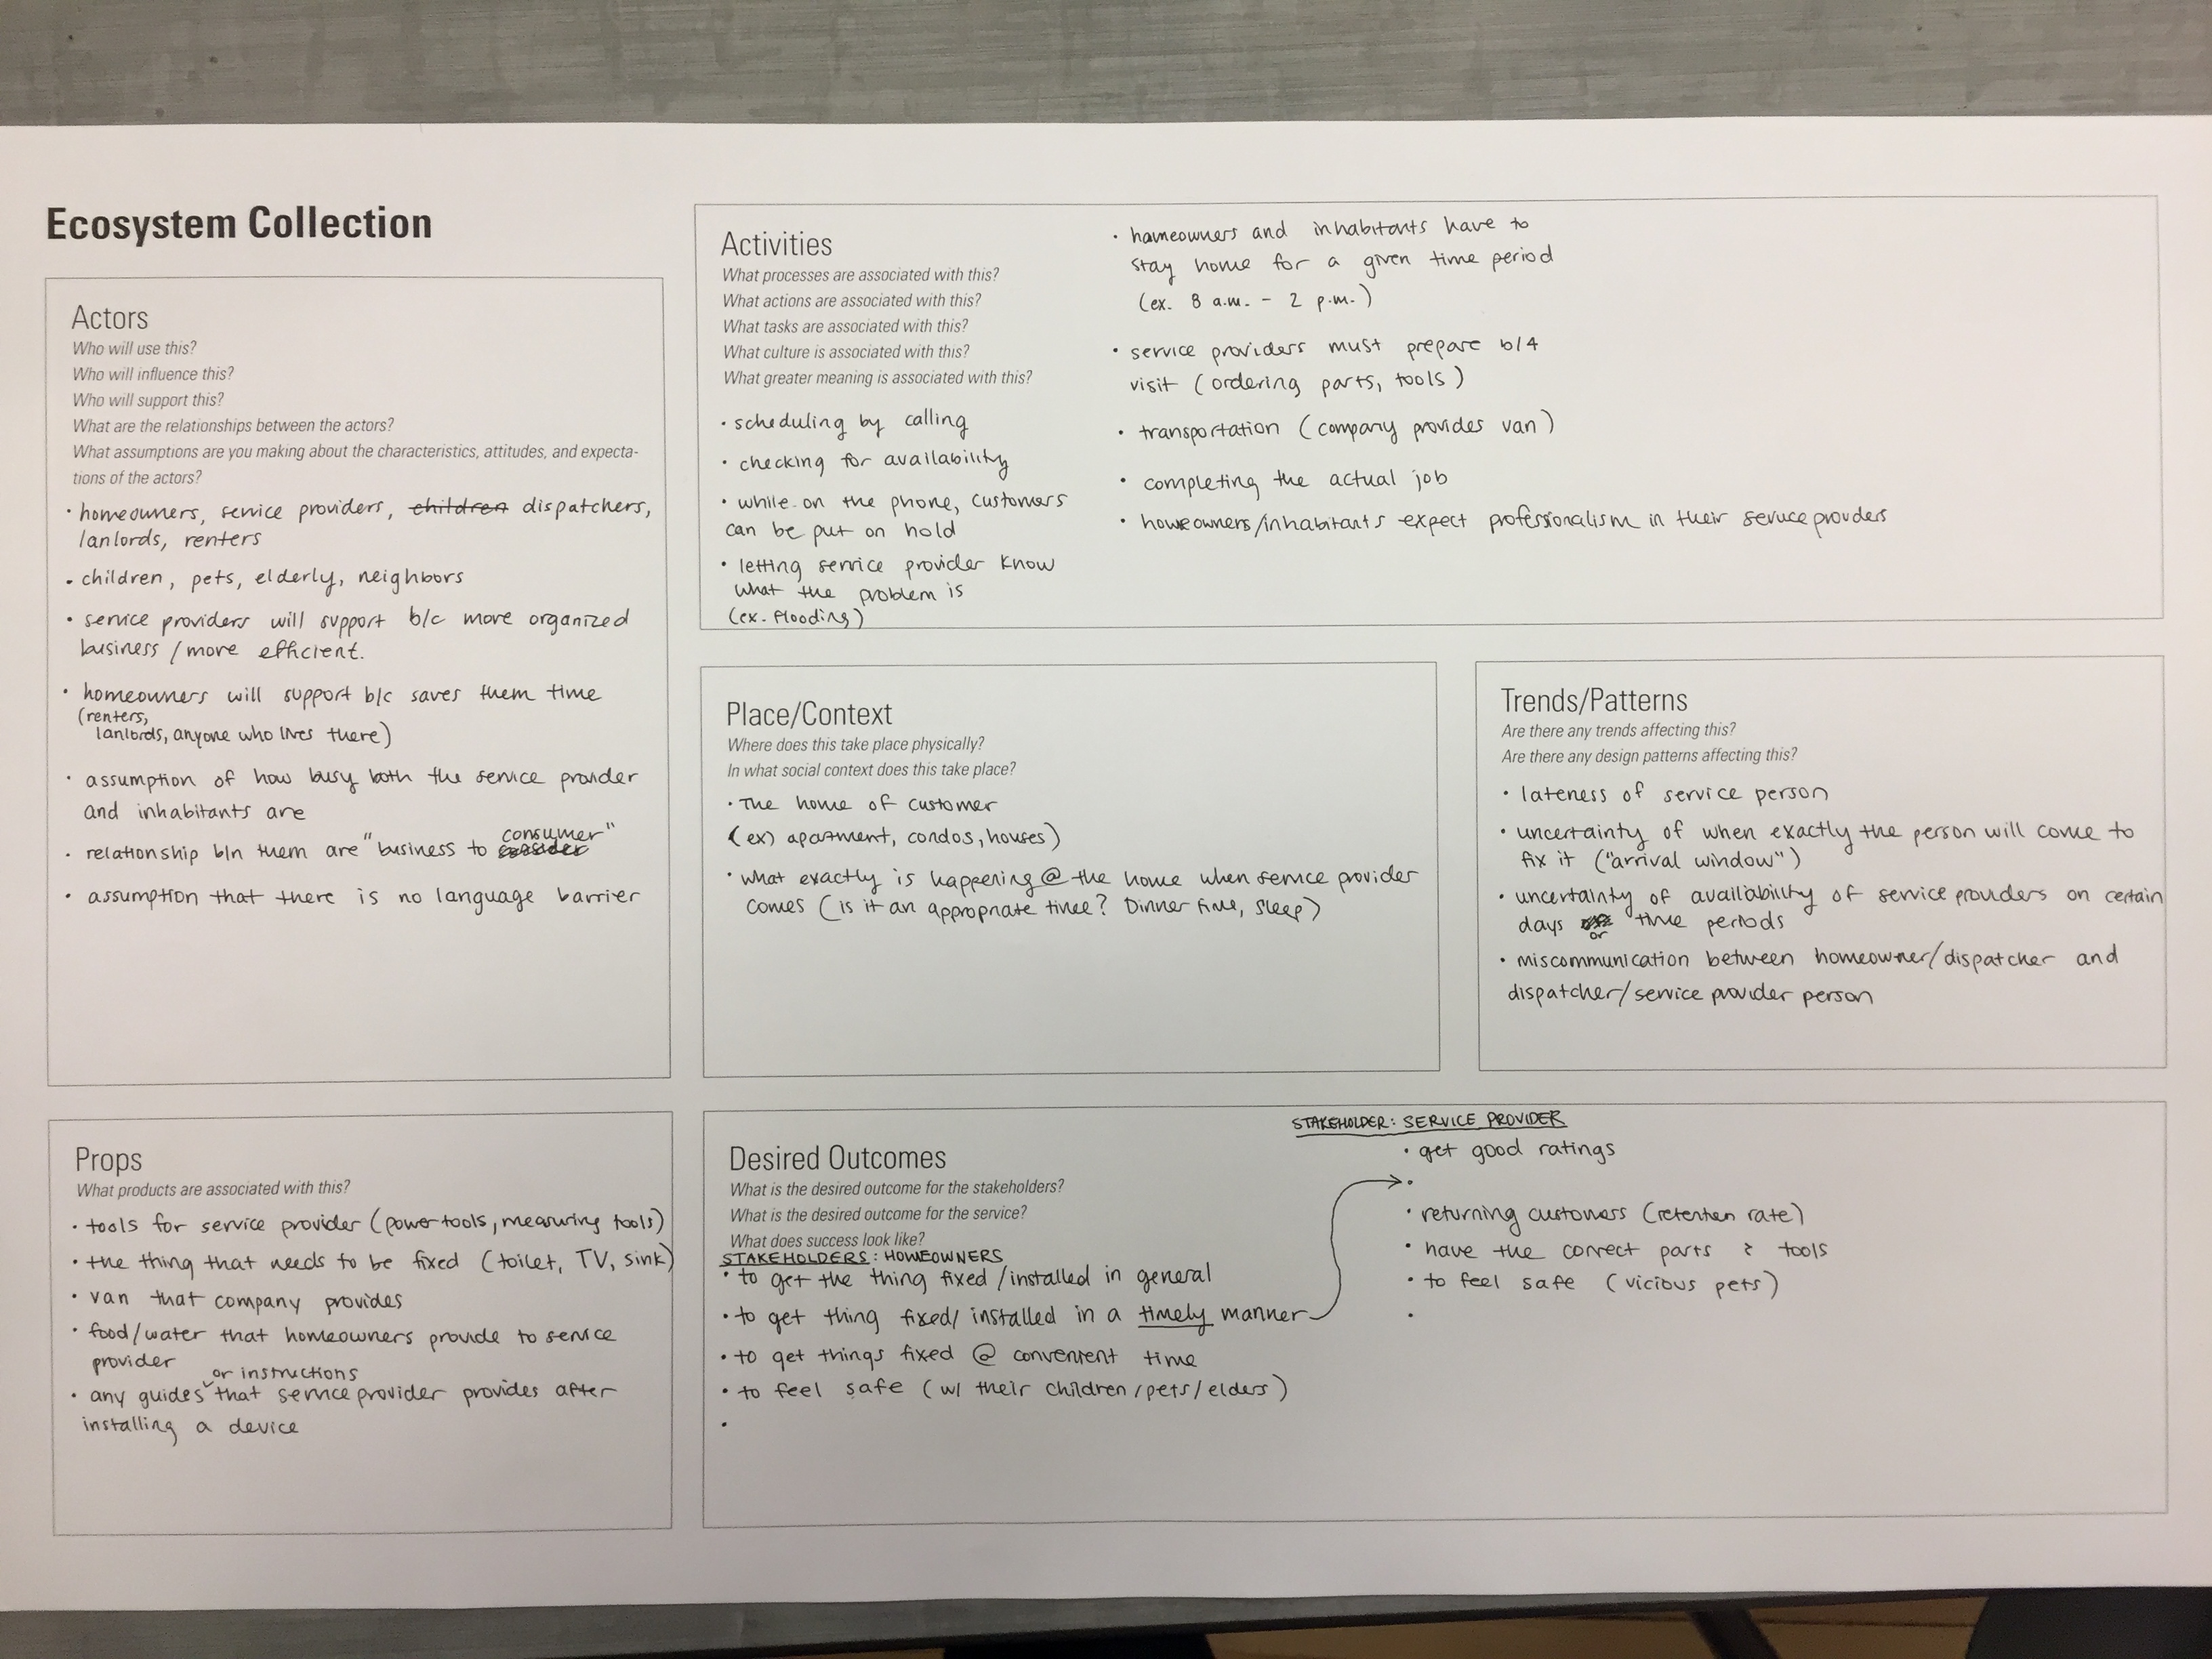 Ecosystem Collection
Actors
Who will use this?
Who will influence this?
Who will support this?
What are the relationships between the actors?
What assumptions are you making about the characteristics, attitudes, and expecta-
tions of the actors?
• homeowners, service providers, children dispatchers,
lanlords, renters
• children, pets, elderly, neighbors
• service providers will support b/c more organized
business / more efficient.
• homeowners will support b/c saves them time
(renters,
lanlords, anyone who lives there)
• assumption of how busy both the service provider
and inhabitants are
consumer"
• relationship b/n them are "business to
• assumption that there is no language barrier
Activities
What processes are associated with this?
What actions are associated with this?
What tasks are associated with this?
What culture is associated with this?
What greater meaning is associated with this?
• scheduling by calling
• checking for availability
• while on the phone, customers
can be put on hold
• letting service provider know
what the problem is
(ex. flooding)
• homeowners and inhabitants have to
stay home for a given time period
(ex. 8 a.m. - 2 p.m.)
• service providers must prepare b/4
visit (ordering parts, tools)
• transportation (company provides van)
• completing the actual job
• homeowners/inhabitants expect professionalism in their service providers
Place/Context
Where does this take place physically?
In what social context does this take place?
• The home of customer
(ex) apartment, condos, houses)
• what exactly is happening @ the home when service provider
comes (is it an appropriate time? Dinner time, sleep)
Trends/Patterns
Are there any trends affecting this?
Are there any design patterns affecting this?
• lateness of service person
• uncertainty of when exactly the person will come to
fix it ("arrival window")
• uncertainty of availability of service providers on certain
days or time periods
• miscommunication between homeowner/dispatcher and
dispatcher/service provider person
Props
What products are associated with this?
• tools for service provider (power tools, measuring tools)
• the thing that needs to be fixed (toilet, TV, sink)
• van that company provides
• food/water that homeowners provide to service
provider
or instructions
• any guides that service provider provides after
installing a device
Desired Outcomes
What is the desired outcome for the stakeholders?
What is the desired outcome for the service?
What does success look like?
STAKEHOLDERS: HOMEOWNERS
• to get the thing fixed/installed in general
• to get thing fixed/installed in a timely manner
• to get things fixed @ convenient time
• to feel safe (w/ their children/pets/elders)
•
STAKEHOLDER: SERVICE PROVIDER
• get good ratings
•
• returning customers (retention rate)
• have the correct parts & tools
• to feel safe (vicious pets)
•